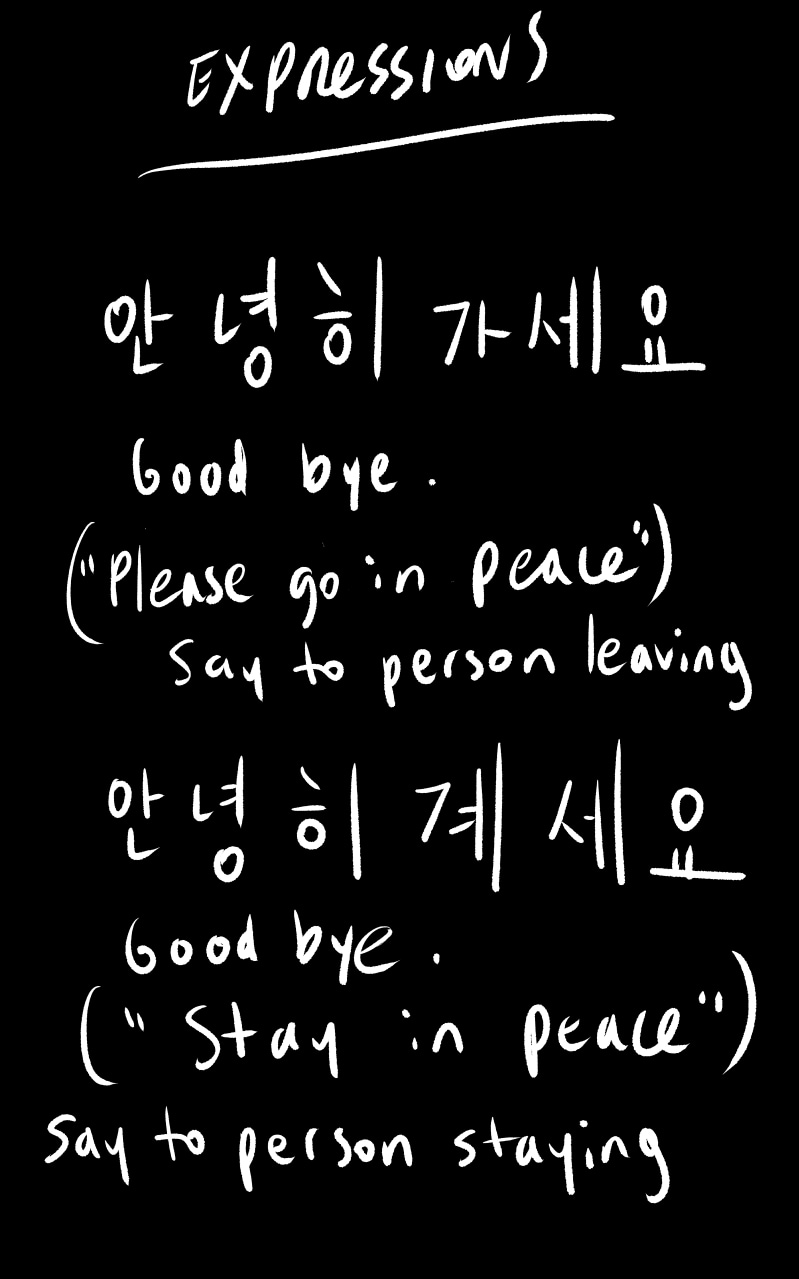 EXPRESSIONS
안녕히 가세요
Good bye.
("Please go in peace")
say to person leaving
안녕히 계세요
Good bye.
("Stay in peace")
say to person staying